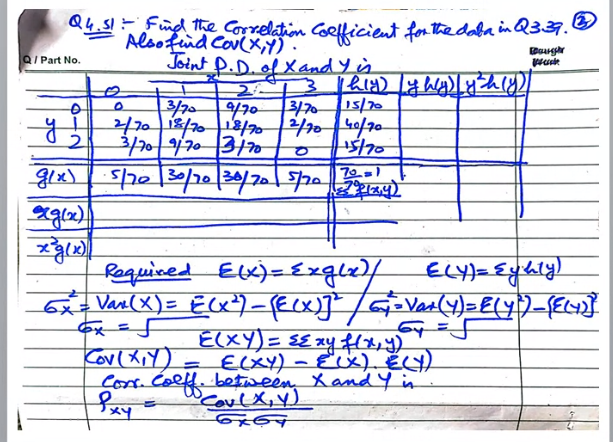 Q4.51 :- Find the Correlation Coefficient for the data in Q3.39. ②
Also find Cov(X,Y).
Q / Part No.
Joint P.D. of X and Y is
x
0 1 2 3 h(y) y h(y) y²h(y)
0 0 3/70 9/70 3/70 15/70
y 1 2/70 18/70 18/70 2/70 40/70
2 3/70 9/70 3/70 0 15/70
g(x) 5/70 30/70 30/70 5/70 70/70 = 1
ΣΣ f(x,y)
xg(x)
x²g(x)
Required E(X) = Σxg(x) / E(Y) = Σyh(y)
σx² = Var(X) = E(X²) – [E(X)]² / σy² = Var(Y) = E(Y²) – [E(Y)]²
σx = √ σy = √
E(XY) = ΣΣ xy f(x,y)
Cov(X,Y) = E(XY) – E(X). E(Y)
Corr. Coeff. between X and Y is
ρxy = Cov(X,Y)
σx σy